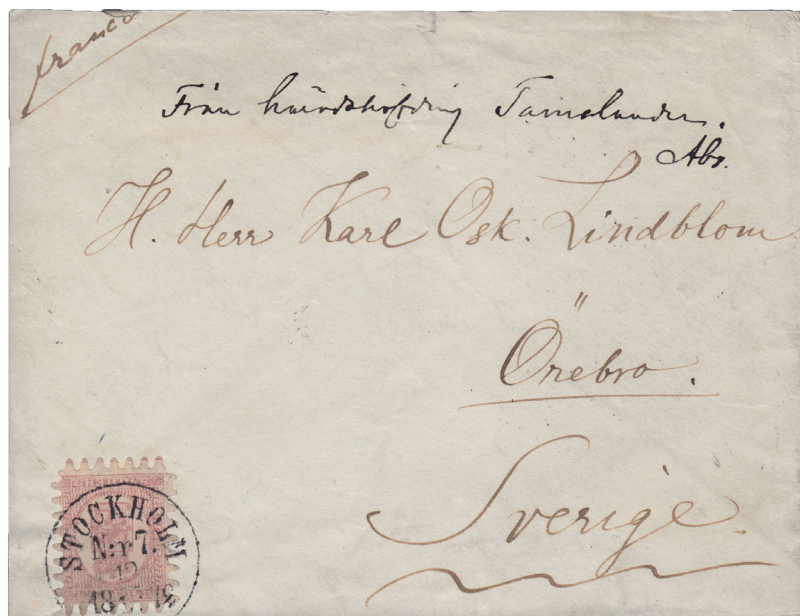 franco
Från häradshöfding
Åbo.
H. Herr Karl Osk. Lindblom
Örebro.
Sverige.
STOCKHOLM
N:r 7.
12